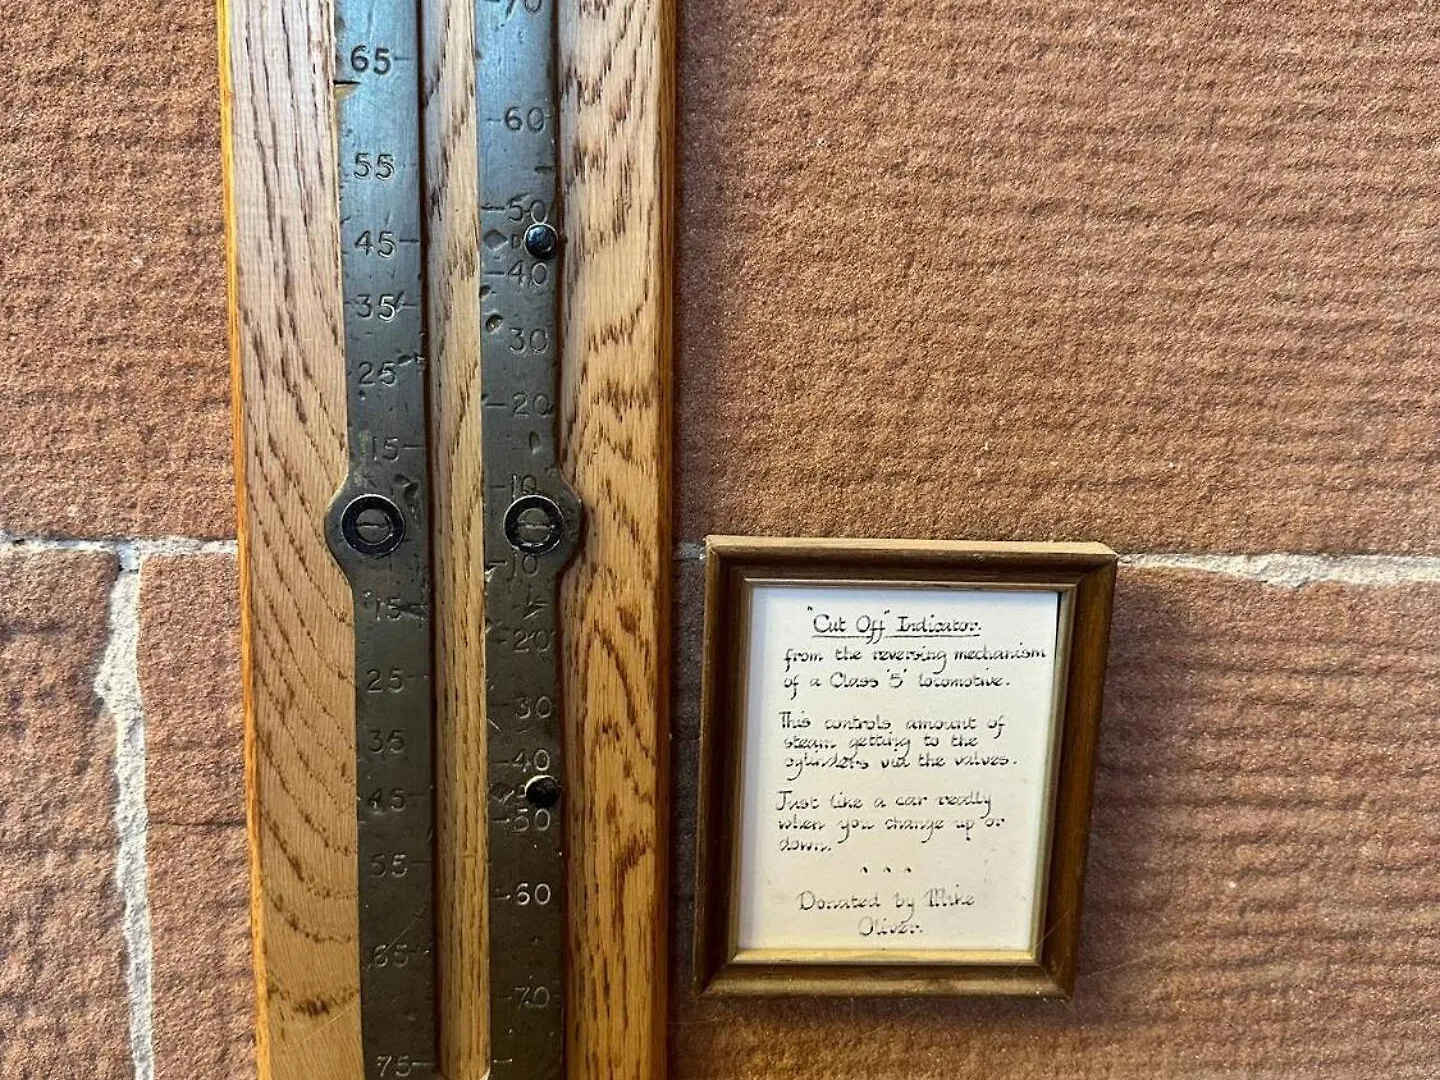 70
65
60
55
50
45
40
35
30
25
20
15
10
10
15
20
25
30
35
40
45
50
55
60
65
70
75
"Cut Off" Indicator.
from the reversing mechanism
of a Class '5' locomotive.
This controls amount of
steam getting to the
cylinders via the valves.
Just like a car really
when you change up or
down.
Donated by Mike
Oliver.